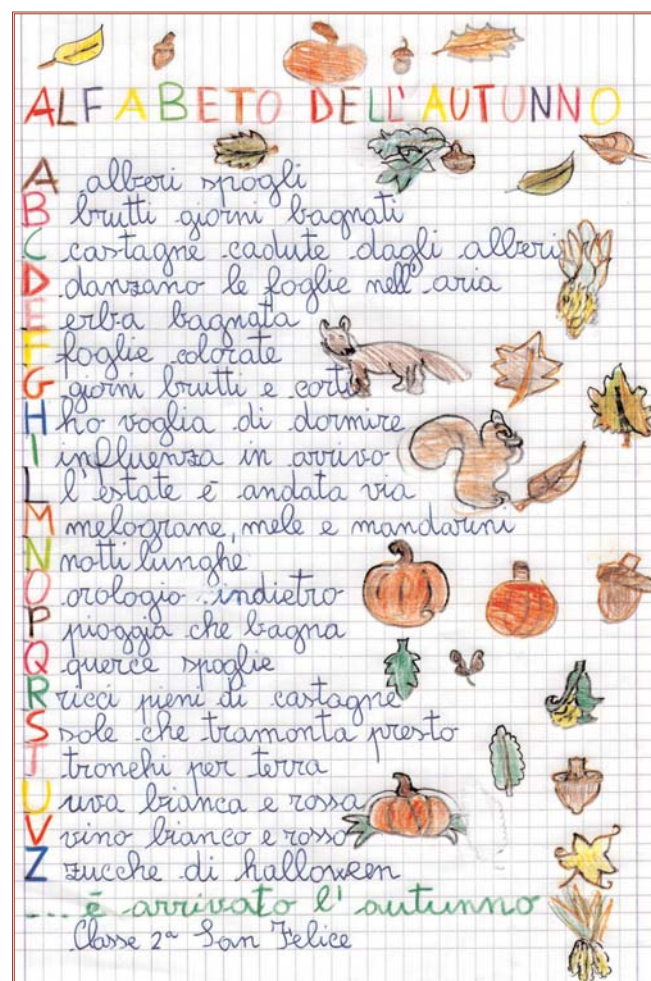 ALFABETO DELL'AUTUNNO
A alberi spogli
B brutti giorni bagnati
C castagne cadute dagli alberi
D danzano le foglie nell'aria
E erba bagnata
F foglie colorate
G giorni brutti e corti
H ho voglia di dormire
I influenza in arrivo
L l'estate è andata via
M melograne, mele e mandarini
N notti lunghe
O orologio indietro
P pioggia che bagna
Q querce spoglie
R ricci pieni di castagne
S sole che tramonta presto
T tronchi per terra
U uva bianca e rossa
V vino bianco e rosso
Z zucche di halloween
... è arrivato l'autunno
Classe 2ª San Felice